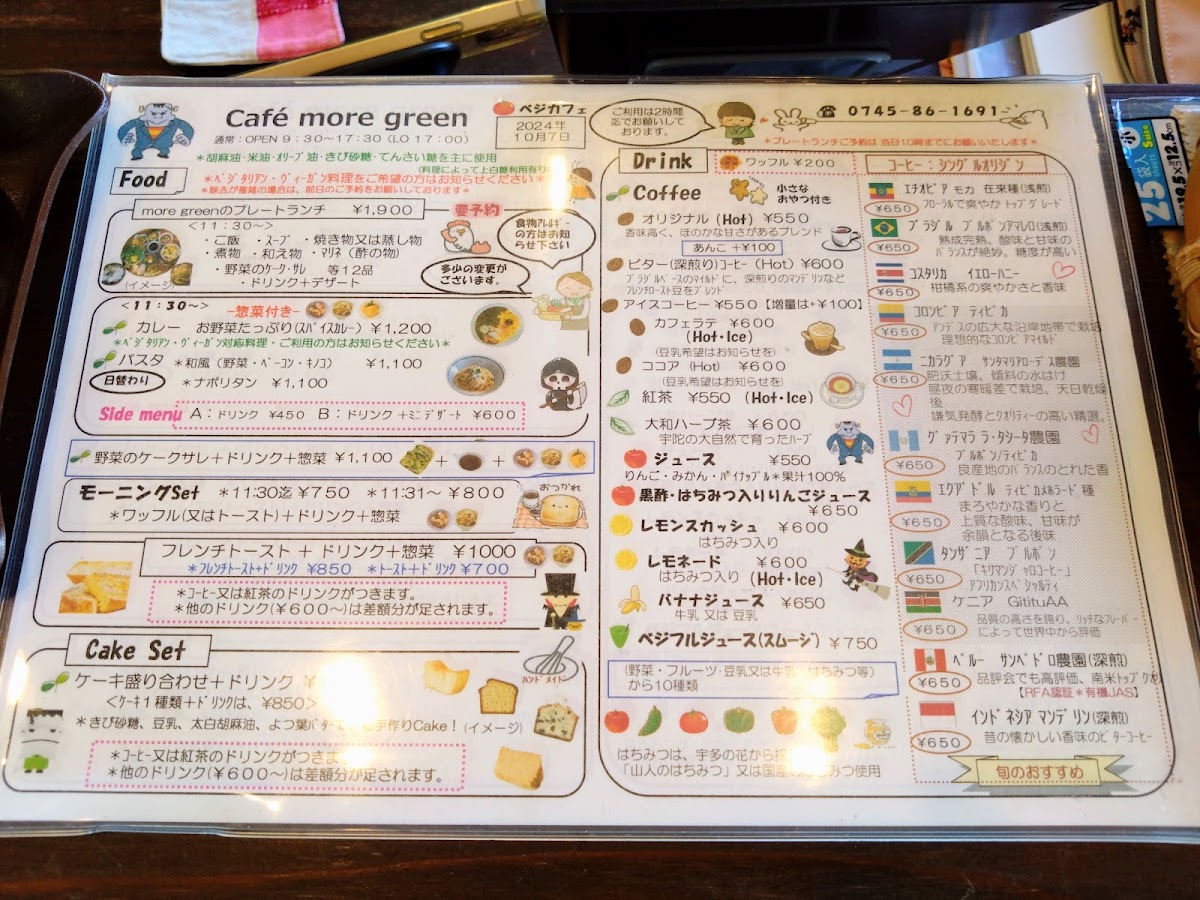 Café more green
ベジカフェ
2024年
10月7日
通常：OPEN 9：30～17：30（LO 17：00）
ご利用は2時間
迄でお願いして
おります。
☎ 0745-86-1691
*プレートランチご予約は 当日10時までにお願いいたします*
*胡麻油・米油・オリーブ油・きび砂糖・てんさい糖を主に使用
(料理によって上白糖利用有り)
*ベジタリアン・ヴィーガン料理をご希望の方はお知らせください*
*除去が複雑の場合は、前日のご予約をお願いしております*
Food
more greenのプレートランチ ￥1,900
要予約
<11：30～>
・ご飯 ・スープ ・焼き物又は蒸し物
・煮物 ・和え物 ・マリネ（酢の物）
・野菜のケーク・サレ 等12品
・ドリンク+デザート
(イメージ)
食物アレルギー
の方はお知
らせ下さい
多少の変更が
ございます。
<11：30～>
-惣菜付き-
カレー お野菜たっぷり(スパイスカレー) ￥1,200
*ベジタリアン・ヴィーガン対応料理・ご利用の方お知らせください*
パスタ *和風（野菜・ベーコン・キノコ） ￥1,100
日替わり
*ナポリタン ￥1,100
Side menu A：ドリンク ￥450 B：ドリンク+ミニデザート ￥600
野菜のケークサレ＋ドリンク＋惣菜 ￥1,100
モーニングSet *11:30迄￥750 *11:31～ ￥800
*ワッフル(又はトースト)＋ドリンク＋惣菜
おつかれ
フレンチトースト ＋ ドリンク＋惣菜 ￥1000
*フレンチトースト+ドリンク ￥850 *トースト+ドリンク ￥700
*コーヒー又は紅茶のドリンクがつきます。
*他のドリンク(￥600～)は差額分が足されます。
Cake Set
ハンドメイド
ケーキ盛り合わせ＋ドリンク ￥
<ケーキ1種類＋ドリンクは、¥850>
*きび砂糖、豆乳、太白胡麻油、よつ葉バター
手作りCake！(イメージ)
*コーヒー又は紅茶のドリンクがつきます
*他のドリンク(￥600～)は差額分が足されます。
Drink
ワッフル ￥200
Coffee
小さな
おやつ付き
オリジナル (Hot) ￥550
香味高く、ほのかな甘さがあるブレンド
あんこ +￥100
ビター(深煎り)コーヒー (Hot) ￥600
ブラジルベースのマイルドに、深煎りのマンデリンなど
フレンチロースト豆をブレンド
アイスコーヒー ￥550【増量は+￥100】
カフェラテ ￥600
(Hot・Ice)
(豆乳希望はお知らせを)
ココア (Hot) ￥600
(豆乳希望はお知らせを)
紅茶 ￥550 (Hot・Ice)
大和ハーブ茶 ￥600
宇陀の大自然で育ったハーブ
ジュース ￥550
りんご・みかん・パイナップル*果汁100%
黒酢・はちみつ入りりんごジュース
￥650
レモンスカッシュ ￥600
はちみつ入り
レモネード ￥600
はちみつ入り (Hot・Ice)
バナナジュース ￥650
牛乳 又は 豆乳
ベジフルジュース(スムージ) ￥750
(野菜・フルーツ・豆乳又は牛乳・はちみつ等)
から10種類
はちみつは、宇多の花から採
「山人のはちみつ」又は国産のはちみつ使用
コーヒー：シングルオリジン
エチオピア モカ 在来種(浅煎)
￥650
フローラルで爽やか トップグレード
ブラジル ブルボンアマレロ(浅煎)
￥650
熟成完熟、酸味と甘味の
バランスが絶妙。糖度が高い
コスタリカ イエローハニー
￥650
柑橘系の爽やかさと香味
コロンビア ティピカ
￥650
アンデスの広大な沿岸地帯で栽培
理想的なコロンビアマイルド
ニカラグア サンタマリアローデス農園
￥650
肥沃土壌、傾斜の水はけ
昼夜の寒暖差で栽培。天日乾燥
後
嫌気発酵とクオリティーの高い精選。
グァテマラ ラ・タシータ農園
￥650
ブルボン/ティピカ
良産地のバランスのとれた香
エクアドル ティピカメホラード種
￥650
まろやかな香りと
上質な酸味、甘味が
余韻となる後味
タンザニア ブルボン
￥650
「キリマンジャロコーヒー」
アフリカンスペシャルティ
ケニア GitituAA
￥650
品質の高さを誇り、リッチなフレーバー
によって世界中から評価
ペルー サンペドロ農園(深煎)
￥650
品評会でも高評価、南米トップクラ
【RFA認証*有機JAS】
インドネシア マンデリン(深煎)
￥650
昔の懐かしい香味のビターコーヒー
旬のおすすめ
25
枚入
SHEETS
Size
12.5cm